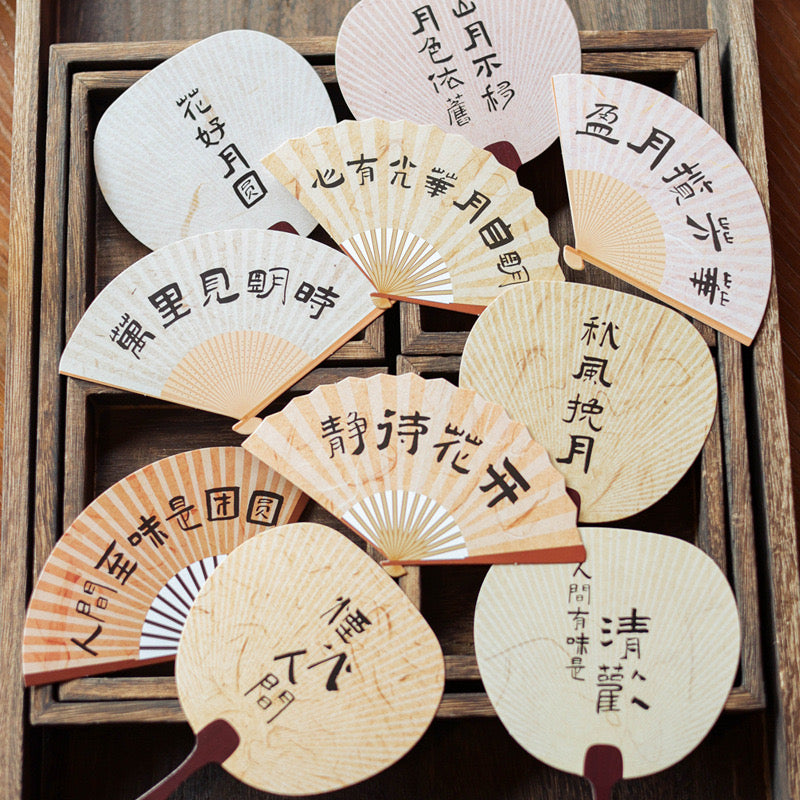 花好月圆
山月不移
月色依舊
心有光華月自明
盈月攢六華
萬里見明時
秋風挽月
静待花开
人間至味是团圆
煙火
人間
人間有味是
清歡